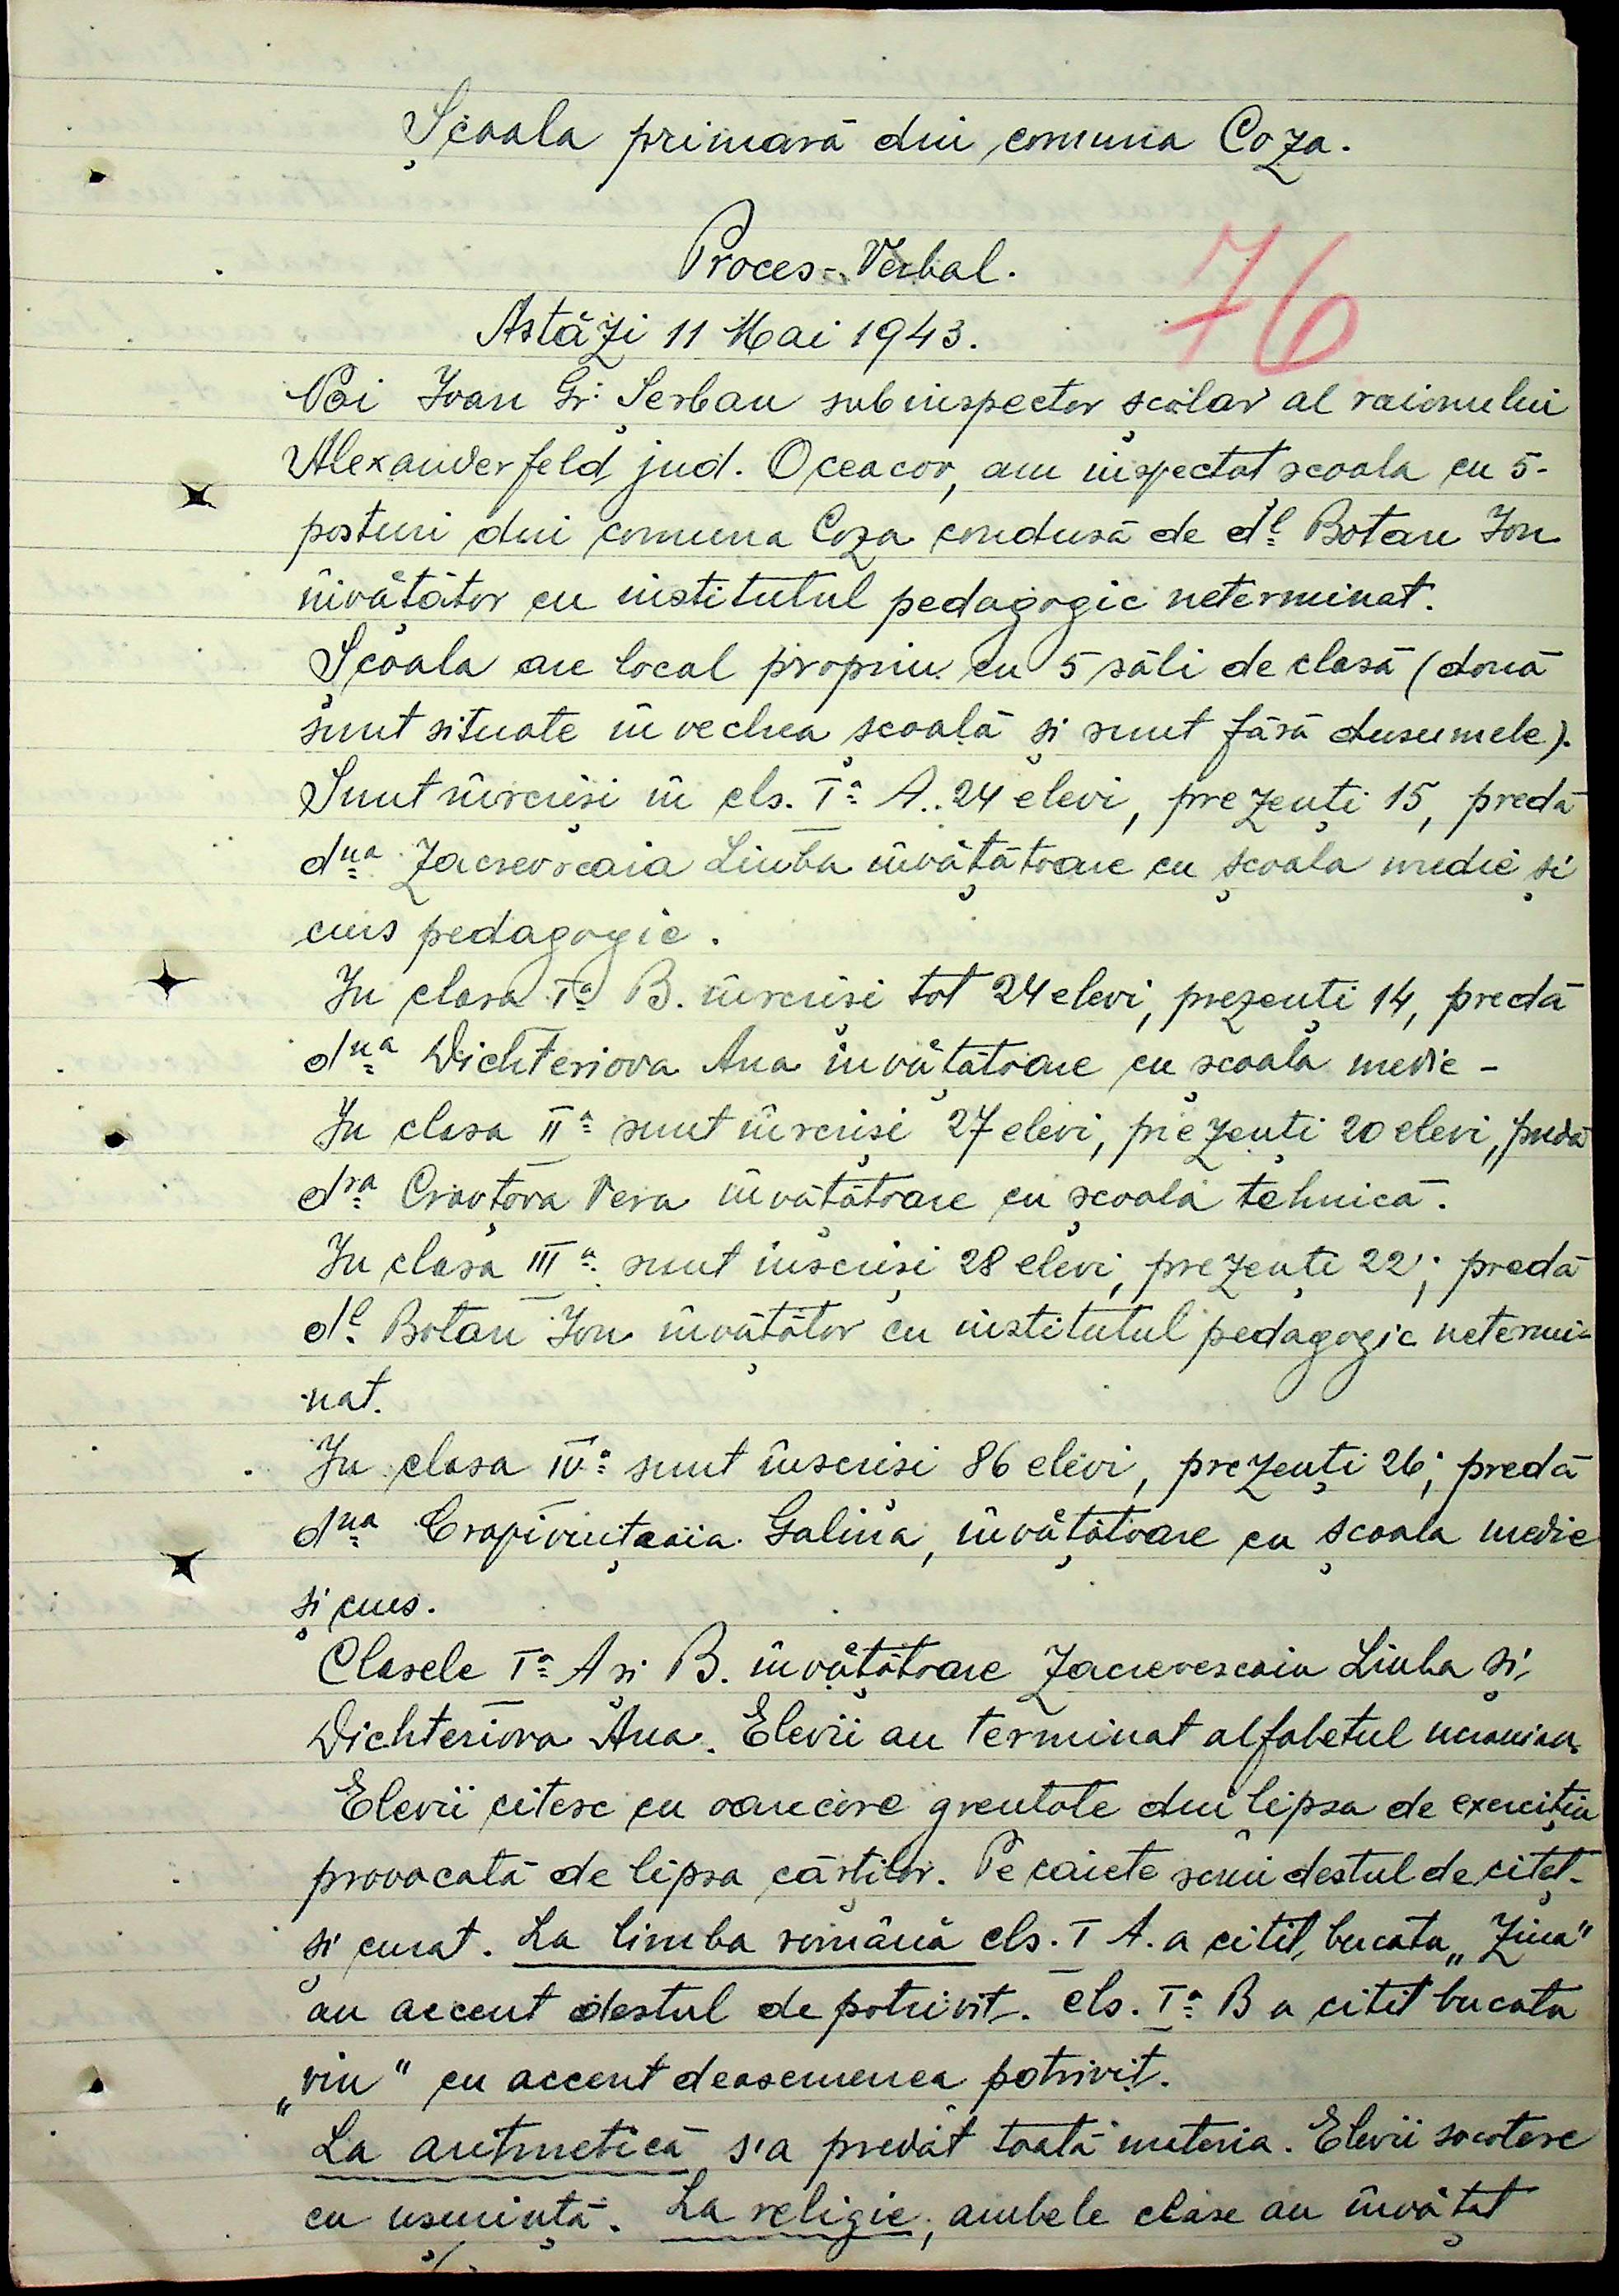 Școala primară din comuna Coza.
Proces-Verbal.
76
Astăzi 11 Mai 1943.
Noi Ioan Gr. Șerban subinspector școlar al raionului
Alexanderfeld jud. Oceacov, am inspectat scoala cu 5-
posturi din comuna Coza condusă de dl Botan Ion
învățător cu institutul pedagogic neterminat.
Școala are local propriu cu 5 săli de clasă (două
sunt situate în vechea școală și sunt fără dusumele).
Sunt înscriși în cls. Ia A. 24 elevi, prezenți 15, predă
dna Zacrevscaia Liuba învățătoare cu școala medie și
curs pedagogic.
In clasa Ia B. înscriși tot 24 elevi, prezenți 14, predă
dna Dichteriova Ana învățătoare cu școala medie -
In clasa IIa sunt înscriși 27 elevi, prezenți 20 elevi, predă
dra Cravțova Vera învățătoare cu școala tehnică.
In clasa IIIa sunt înscriși 28 elevi, prezenți 22; predă
dl Botan Ion învățător cu institutul pedagogic netermi-
nat.
In clasa IVa sunt înscriși 86 elevi, prezenți 26; predă
dna Galina, învățătoare cu școala medie
și curs.
Clasele Ia A și B. învățătoare Zacrevescaia Liuba și
Dichteriova Ana. Elevii au terminat alfabetul ucranian.
Elevii citesc cu oarecare greutate din lipsa de exercițiu
provocată de lipsa cărților. Pe caiete scriu destul de citeț-
și curat. La limba română cls. I A. a citit, bucata „Zina"
au accent destul de potrivit. Cls. Ia B a citit bucata
„vin" cu accent deasemenea potrivit.
La aritmetică s'a predat toată materia. Elevii socotesc
cu ușurință. La religie, ambele clase au învățat
./.